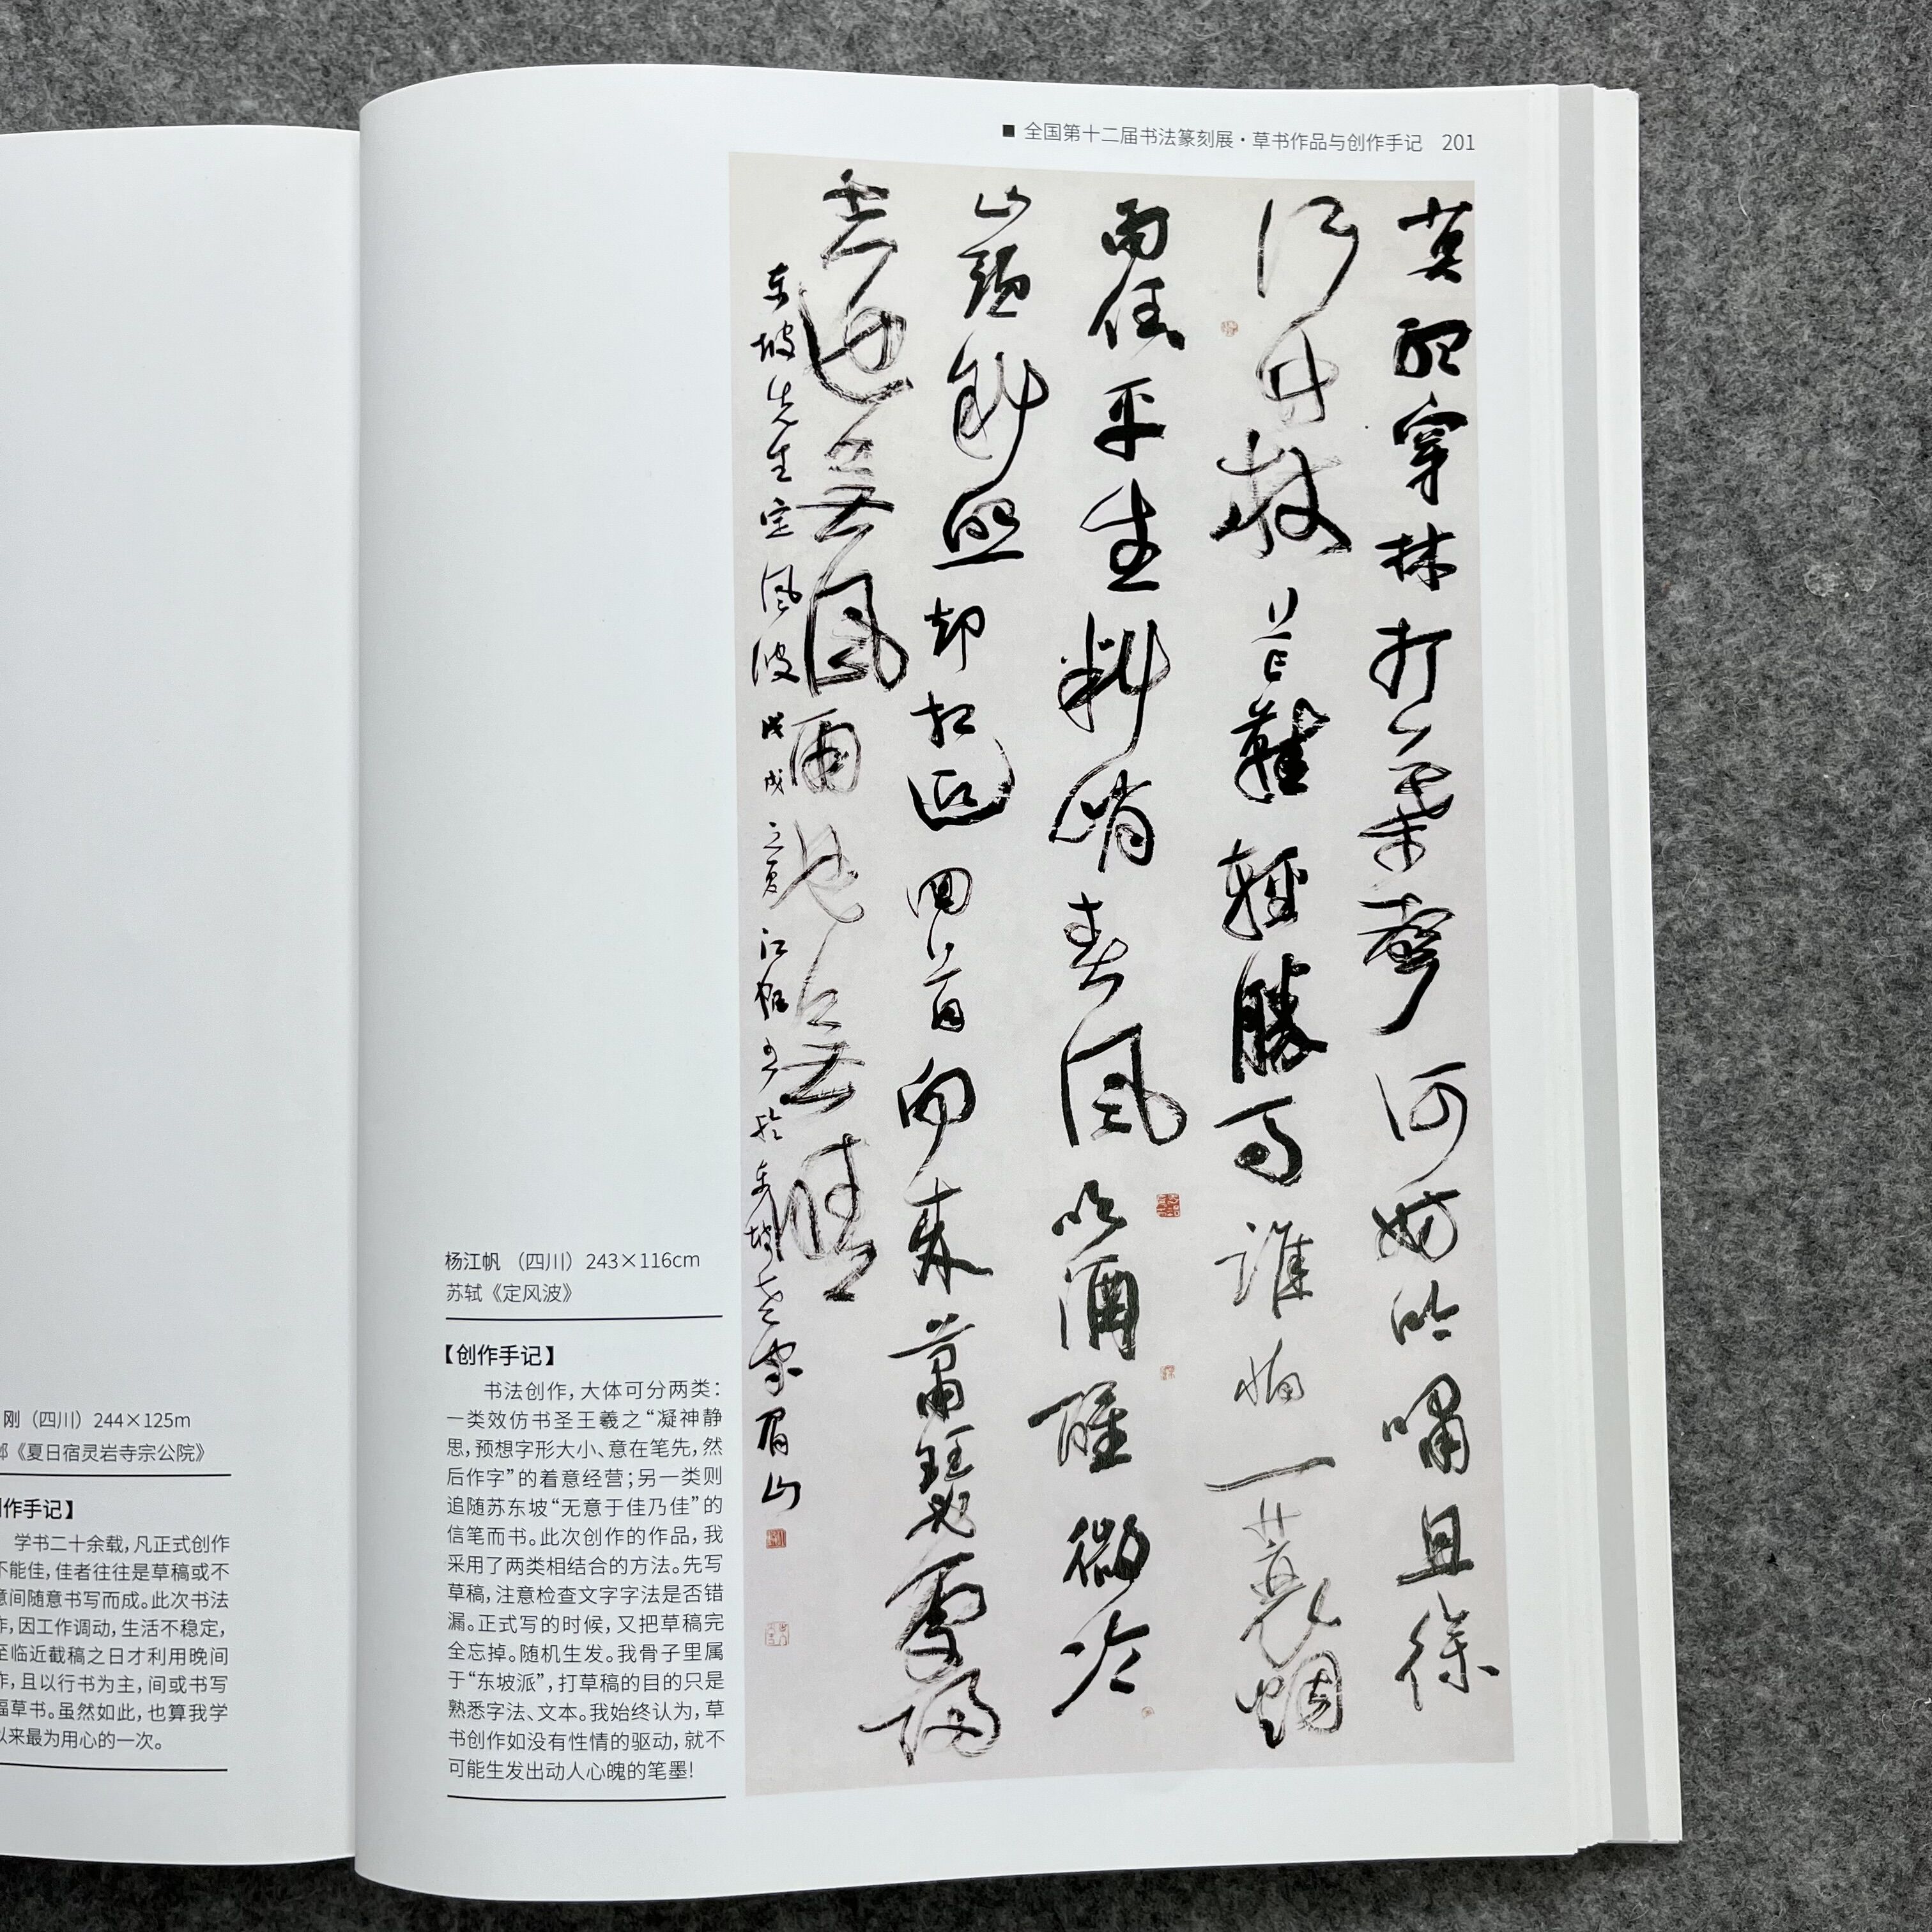 ■ 全国第十二届书法篆刻展·草书作品与创作手记 201
莫聽穿林打葉聲何妨吟嘯且徐
行竹杖芒鞋輕勝馬誰怕一蓑煙
雨任平生料峭春風吹酒醒微冷
山頭斜照却相迎回首向來蕭瑟處歸
去也無風雨也無晴
东坡先生定風波戊戌立夏江帆書於東坡老家眉山
杨江帆（四川）243×116cm
苏轼《定风波》
【创作手记】
书法创作，大体可分两类：
一类效仿书圣王羲之“凝神静
思，预想字形大小、意在笔先，然
后作字”的着意经营；另一类则
追随苏东坡“无意于佳乃佳”的
信笔而书。此次创作的作品，我
采用了两类相结合的方法。先写
草稿，注意检查文字字法是否错
漏。正式写的时候，又把草稿完
全忘掉。随机生发。我骨子里属
于“东坡派”，打草稿的目的只是
熟悉字法、文本。我始终认为，草
书创作如没有性情的驱动，就不
可能生发出动人心魄的笔墨！
刚（四川）244×125m
《夏日宿灵岩寺宗公院》
作手记】
学书二十余载，凡正式创作
不能佳，佳者往往是草稿或不
意间随意书写而成。此次书法
作，因工作调动，生活不稳定，
至临近截稿之日才利用晚间
作，且以行书为主，间或书写
幅草书。虽然如此，也算我学
以来最为用心的一次。